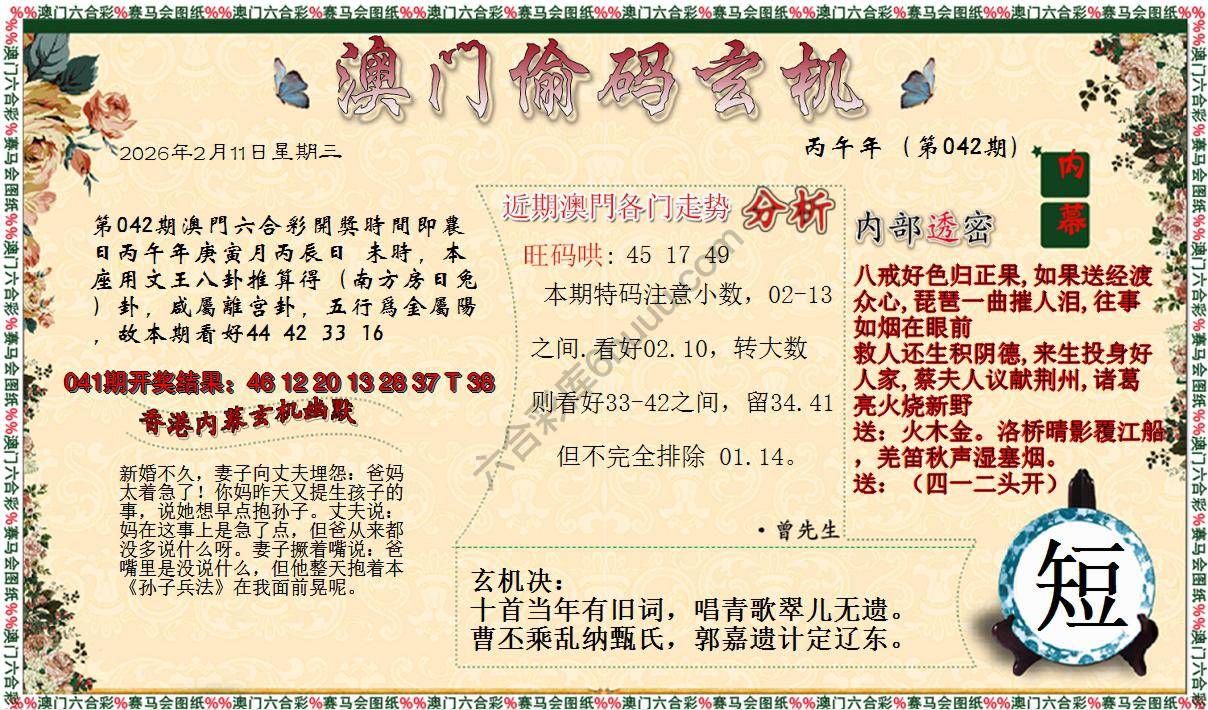 %%澳门六合彩%赛马会图纸%%澳门六合彩%赛马会图纸%%澳门六合彩%赛马会图纸%%澳门六合彩%赛马会图纸%%澳门六合彩%赛马会图纸%%澳门六合彩%赛马会图纸%%
澳门偷码玄机
2026年2月11日星期三
丙午年（第042期）
内幕
第042期澳門六合彩開獎時間即農
日丙午年庚寅月丙辰日 未時，本
座用文王八卦推算得（南方房日兔
）卦，咸屬離宫卦，五行爲金屬陽
，故本期看好44 42 33 16
041期开奖结果：46 12 20 13 26 37 T 38
香港内幕玄机幽默
新婚不久，妻子向丈夫埋怨：爸妈
太着急了！你妈昨天又提生孩子的
事，说她想早点抱孙子。丈夫说：
妈在这事上是急了点，但爸从来都
没多说什么呀。妻子撅着嘴说：爸
嘴里是没说什么，但他整天抱着本
《孙子兵法》在我面前晃呢。
近期澳門各门走势 分析
旺码哄: 45 17 49
本期特码注意小数，02-13
之间.看好02.10，转大数
则看好33-42之间，留34.41
但不完全排除 01.14。
·曾先生
内部透密
八戒好色归正果,如果送经渡
众心,琵琶一曲摧人泪,往事
如烟在眼前
救人还生积阴德,来生投身好
人家,蔡夫人议献荆州,诸葛
亮火烧新野
送：火木金。洛桥晴影覆江船
，羌笛秋声湿塞烟。
送：（四一二头开）
玄机决：
十首当年有旧词，唱青歌翠儿无遗。
曹丕乘乱纳甄氏，郭嘉遗计定辽东。
短
%%澳门六合彩%赛马会图纸%%澳门六合彩%赛马会图纸%%澳门六合彩%赛马会图纸%%澳门六合彩%赛马会图纸%%澳门六合彩%赛马会图纸%%澳门六合彩%赛马会图纸%%